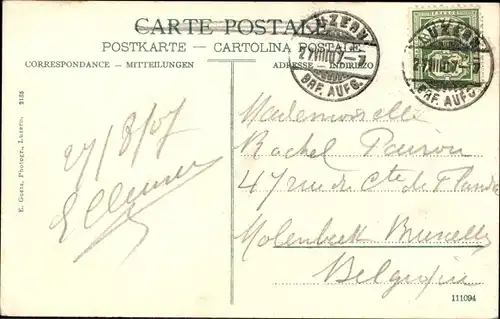 CARTE POSTALE
POSTKARTE — CARTOLINA POSTALE
CORRESPONDANCE – MITTEILUNGEN
ADRESSE – INDIRIZZO
LUZERN
BRF. AUFG.
LUZERN
BRF. AUFG.
27/8/07
Mademoiselle
Rachel
47 rue de Cte de Flandre
Molenbeek Bruxelles
Belgique
E. Goetz, Photogr., Luzern. 2155
111094